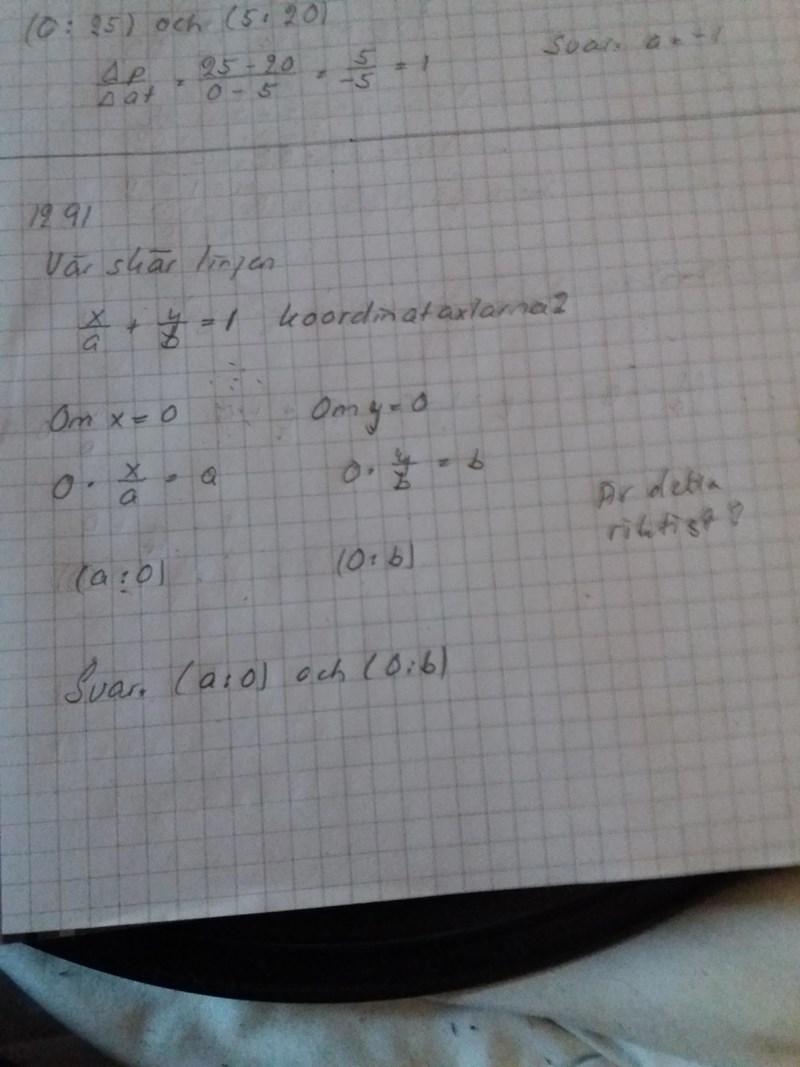 (0:25) och (5:20)
Δp/Δat = 25-20/0-5 = 5/-5 = 1 Svar. a = -1
1291
Var skär linjen
x/a + y/b = 1 koordinataxlarna?
Om x = 0 Om y = 0
0 · x/a = a 0 · y/b = b
Är detta
riktigt?
(a:0) (0:b)
Svar. (a:0) och (0:b)